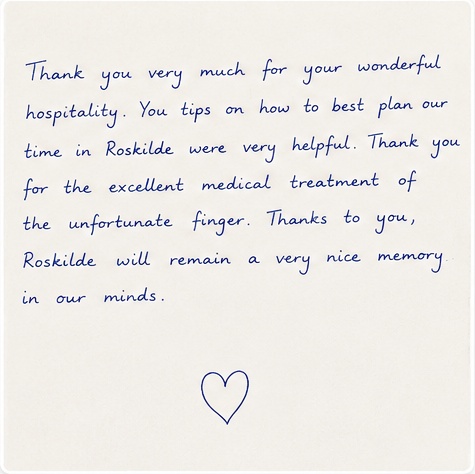 Thank you very much for your wonderful
hospitality. You tips on how to best plan our
time in Roskilde were very helpful. Thank you
for the excellent medical treatment of
the unfortunate finger. Thanks to you,
Roskilde will remain a very nice memory
in our minds.